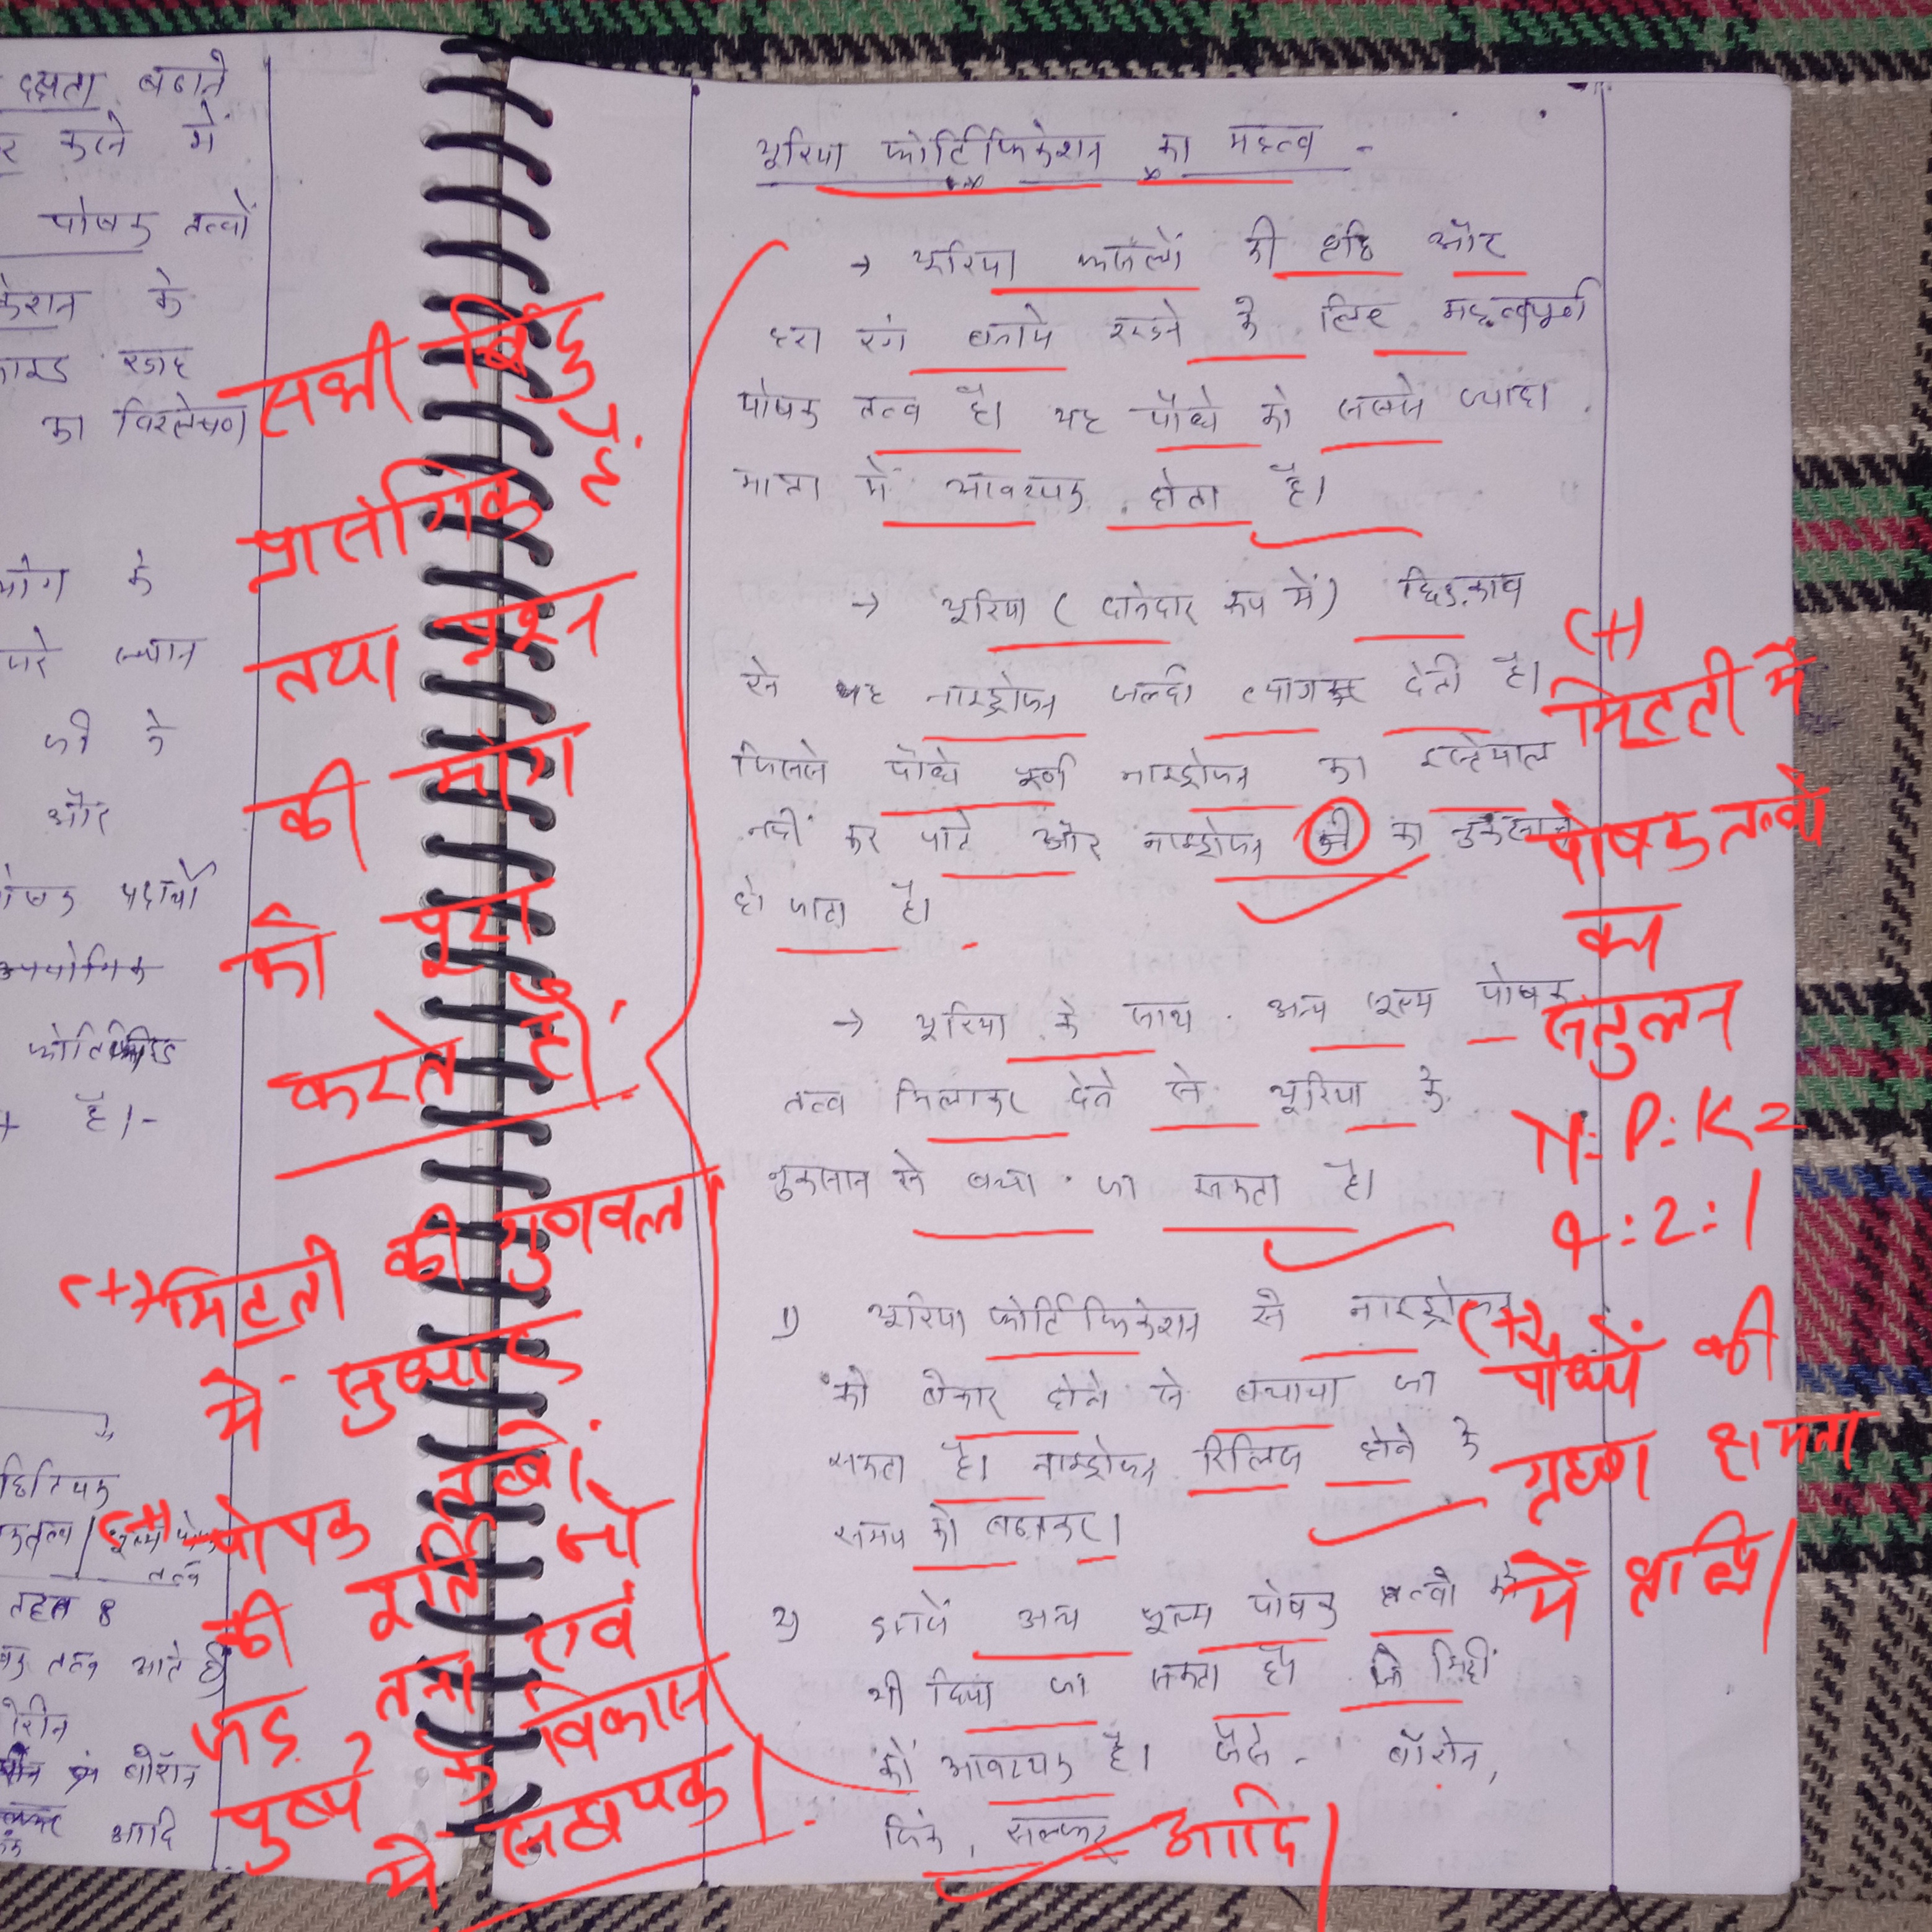 दक्षता बढाने
करने में
पोषक तत्वों
केशन के
का विश्लेषण
के
ध्यान
और
पदार्थों
फोर्टिफाइड
है।-
तहत 8
तत्व आते हैं
बोरॉन
आदि
सभी बिंदु
प्रासंगिक हैं
तथा प्रश्न
की मांग
को पूरा
करते हैं।
(+) मिटटी की गुणवत्ता
में सुधार
(+) पोषक तत्वों
की पूर्ति जो
जड़ तना एवं
पुष्प के विकास
में सहायक।
यूरिया फोर्टिफिकेशन का महत्व -
→ यूरिया फसलों की वृद्धि और
हरा रंग बनाये रखने के लिए महत्वपूर्ण
पोषक तत्व है। यह पौधे को सबसे ज्यादा
मात्रा में आवश्यक होता है।
→ यूरिया (दानेदार रूप में) छिड़काव
से यह नाइट्रोजन जल्दी त्याग देती है।
जिससे पौधे पूर्ण नाइट्रोजन का इस्तेमाल
नहीं कर पाते और नाइट्रोजन का
हो जाता है।
→ यूरिया के साथ अन्य सूक्ष्म पोषक
तत्व मिलाकर देने से यूरिया के
नुकसान से बचा जा सकता है।
1) यूरिया फोर्टिफिकेशन से नाइट्रोजन
को बेकार होने से बचाया जा
सकता है। नाइट्रोजन रिलिज होने के
समय को बढाकर।
2) इसमें अन्य सूक्ष्म पोषक तत्वों को
भी दिया जा सकता है। जो मिट्टी
को आवश्यक है। जैसे - बोरोन,
जिंक, सल्फर आदि।
(+)
मिटटी में
पोषक तत्वों
का
संतुलन
N:P:K=
4:2:1
(+) पौधों की
ग्रहण क्षमता
में वृद्धि।